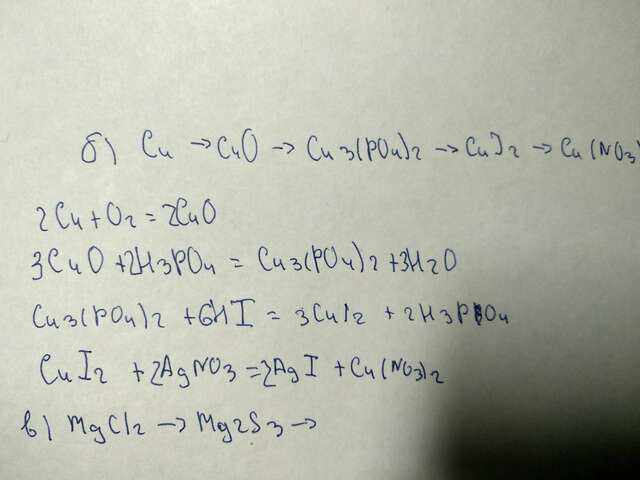 б) Cu → CuO → Cu3(PO4)2 → CuI2 → Cu(NO3)
2Cu + O2 = 2CuO
3CuO + 2H3PO4 = Cu3(PO4)2 + 3H2O
Cu3(PO4)2 + 6HI = 3CuI2 + 2H3PO4
CuI2 + 2AgNO3 = 2AgI + Cu(NO3)2
в) MgCl2 → Mg2S3 →